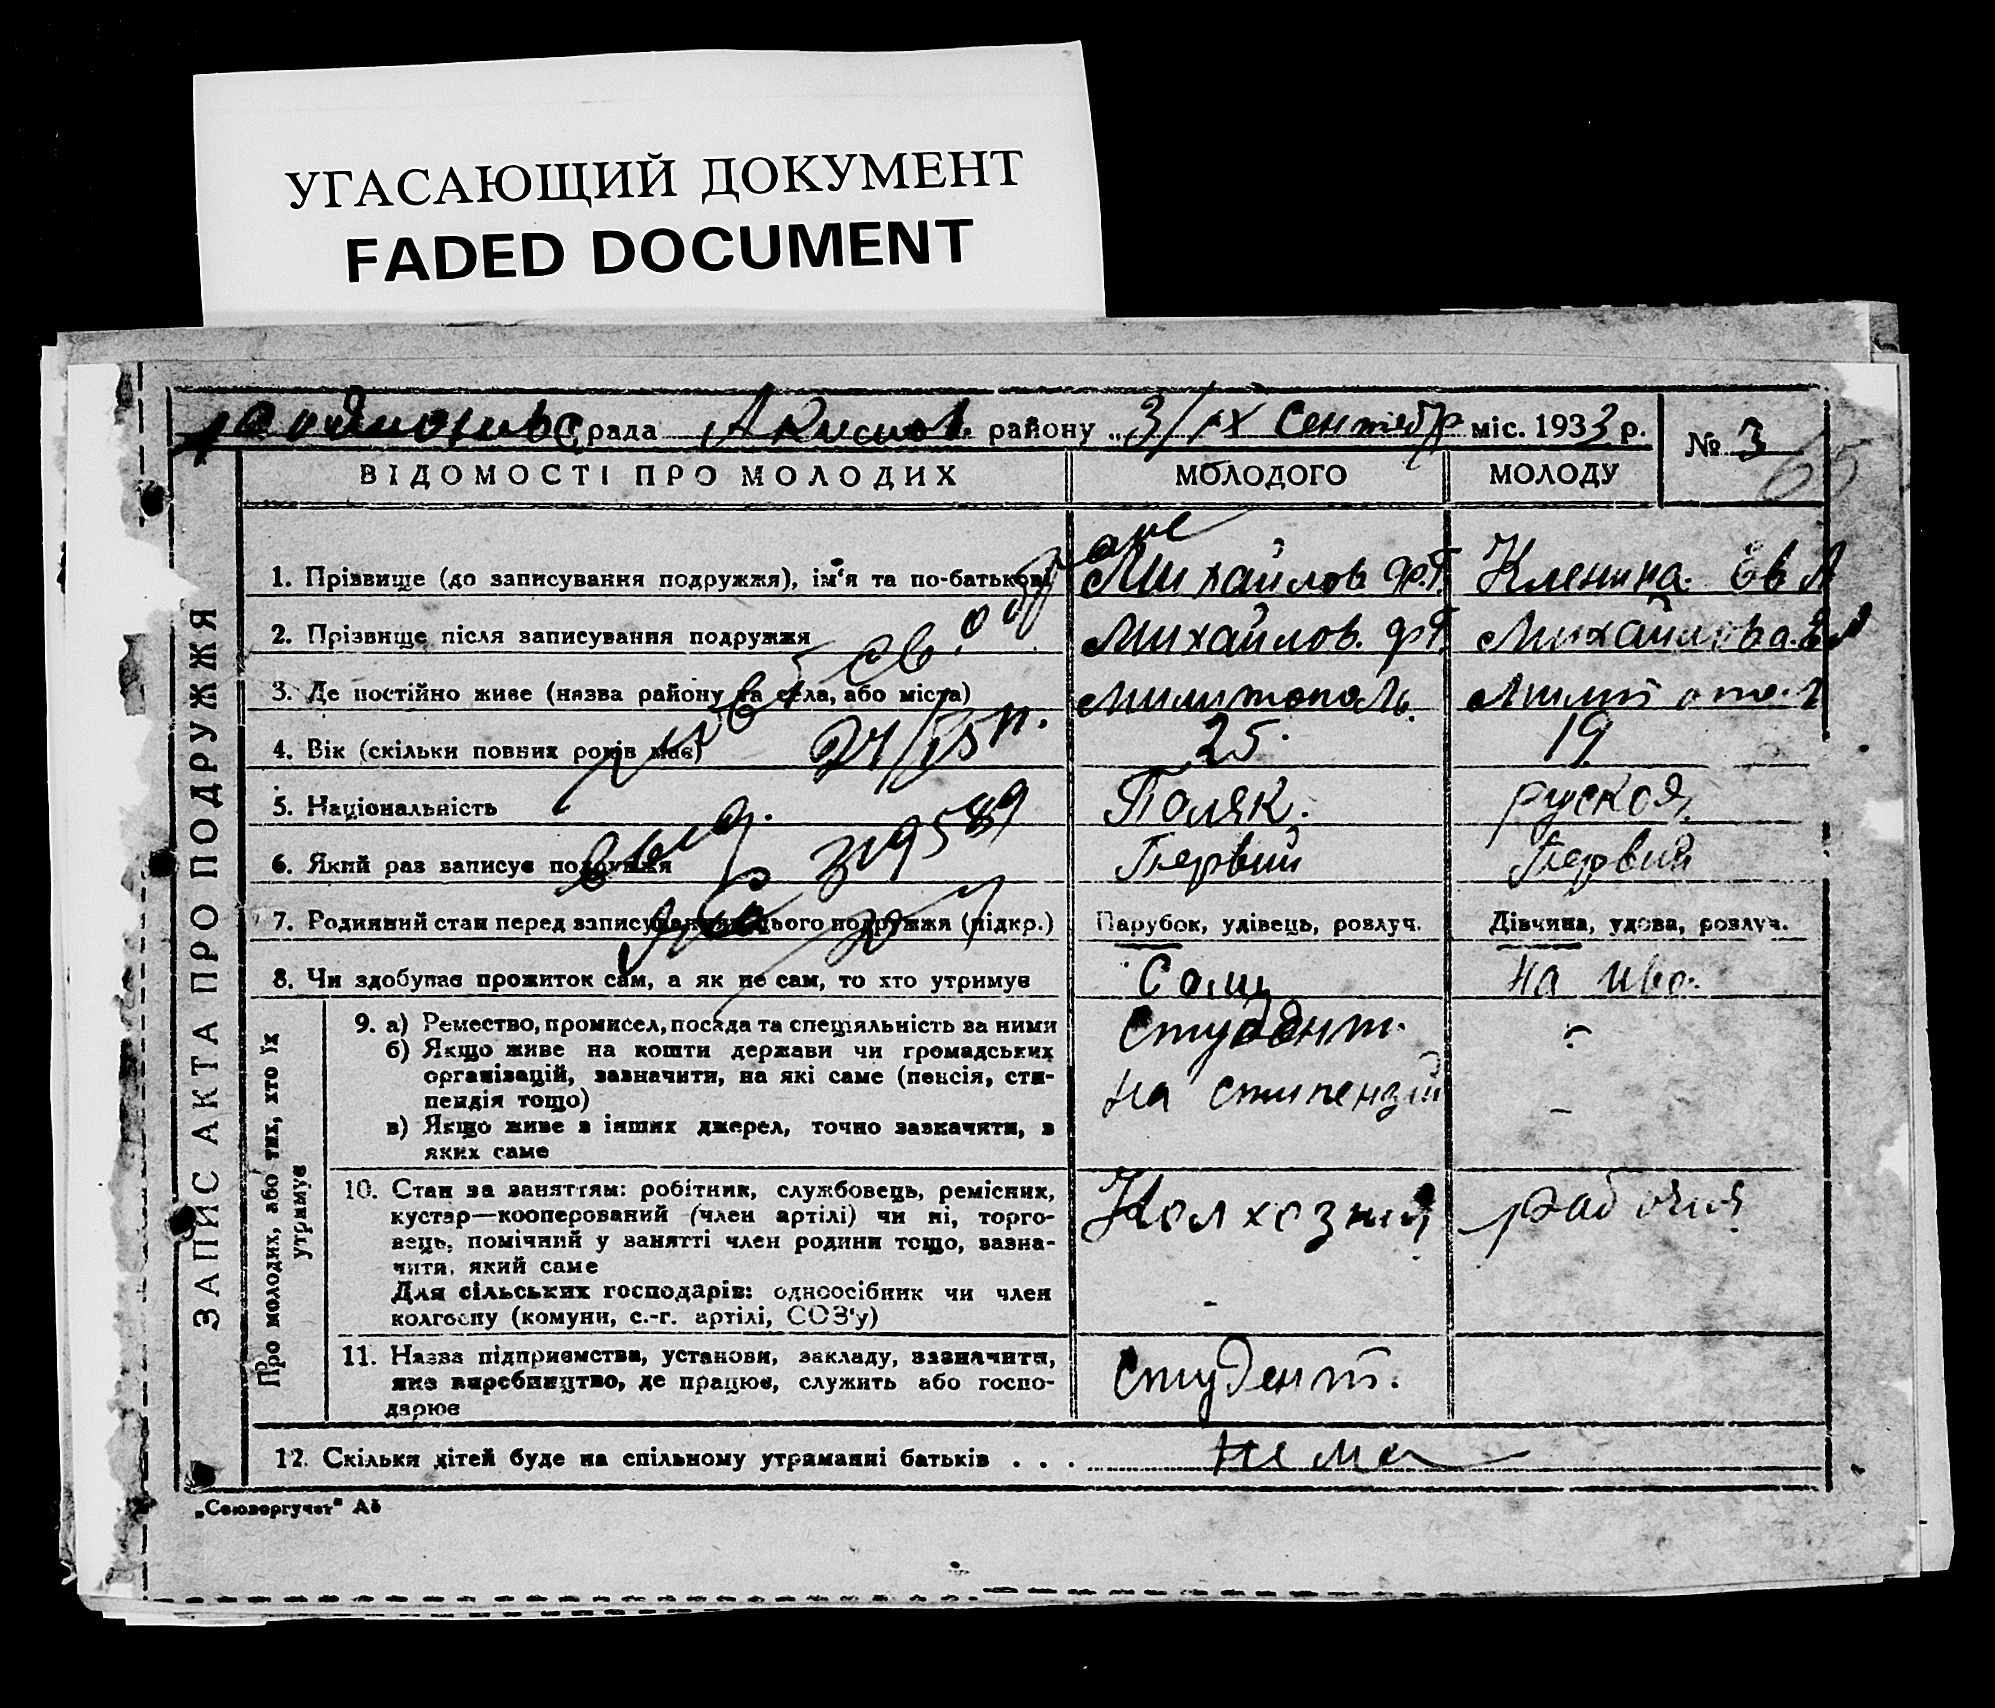 УГАСАЮЩИЙ ДОКУМЕНТ
FADED DOCUMENT
рада Акимов. району „3/IX Сентябр міс. 1933 р. № 3
65
ЗАПИС АКТА ПРО ПОДРУЖЖЯ
ВІДОМОСТІ ПРО МОЛОДИХ МОЛОДОГО МОЛОДУ
1. Прізвище (до записування подружжя), ім'я та по-батькові Михайлов Ф.Г. Кленина. Ев А
2. Прізвище після записування подружжя Михайлов. Ф Г. Михайлова. Е А
3. Де постійно живе (назва району та села, або міста) Милитополь. Милитопол
4. Вік (скільки повних років має) 25. 19
5. Національність Поляк. руская.
6. Який раз записує подружжя Первий Первий
выд. 319589
7. Родинний стан перед записуванням цього подружжя (підкр.) Парубок, удівець, розлуч. Дівчина, удова, розлуч.
8. Чи здобуває прожиток сам, а як не сам, то хто утримує Сам на
Про молодих, або тих, хто їх утримує
9. а) Ремество, промисел, посада та спеціяльність за ними Студент. -
б) Якщо живе на кошти держави чи громадських
організацій, зазначити, на які саме (пенсія, сти-
пендія тощо) на стипензий -
в) Якщо живе з інших джерел, точно зазначити, з
яких саме
10. Стан за заняттям: робітник, службовець, ремісник, Колхозний рабочий
кустар—кооперований (член артілі) чи ні, торго-
вець, помічний у занятті член родини тощо, зазна-
чити, який саме
Для сільських господарів: одноосібник чи член -
колгоспу (комуни, с.-г. артілі, СОЗ'у)
11. Назва підприємства, установи, закладу, зазначити,
яке виробництво, де працює, служить або госпо- студент.
дарює
12. Скільки дітей буде на спільному утриманні батьків . . . нема
„Союзоргучет" Аб